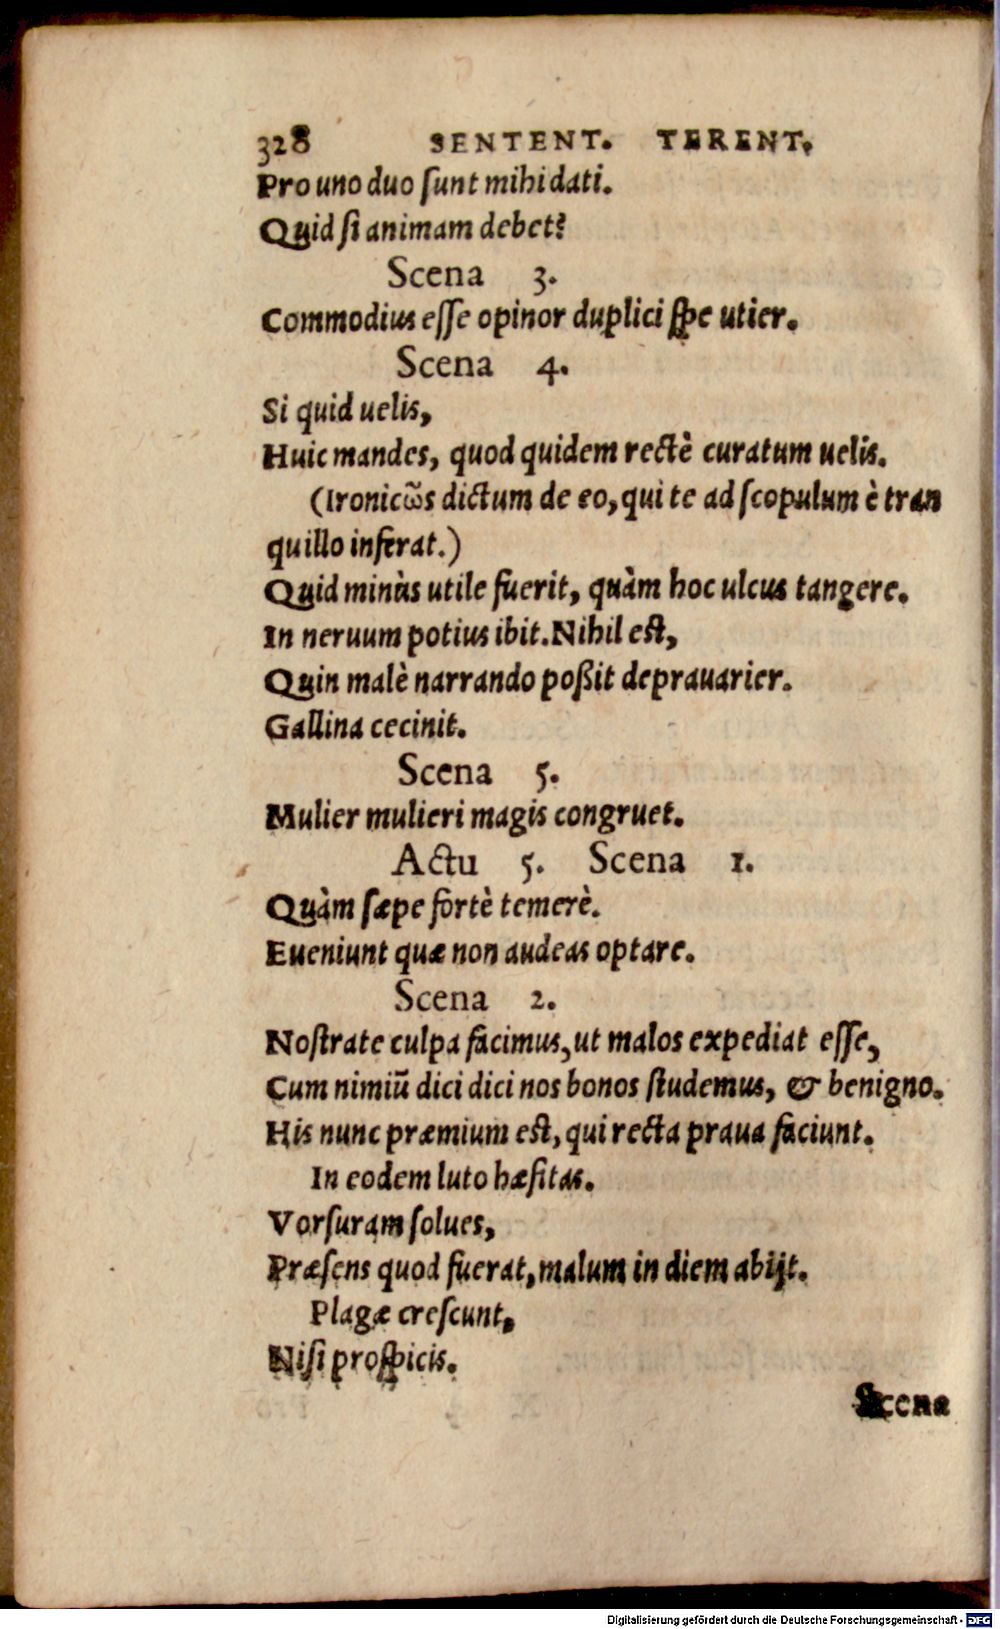 328 SENTENT. TERENT.
Pro uno duo ſunt mihi dati.
Quid ſi animam debet?
Scena 3.
Commodius eſſe opinor duplici ſpe utier.
Scena 4.
Si quid uelis,
Huic mandes, quod quidem rectè curatum uelis.
(Ironicῶs dictum de eo, qui te ad ſcopulum è tran
quillo inferat.)
Quid minùs utile fuerit, quàm hoc ulcus tangere.
In neruum potius ibit. Nihil eſt,
Quin malè narrando poßit deprauarier.
Gallina cecinit.
Scena 5.
Mulier mulieri magis congruet.
Actu 5. Scena 1.
Quàm ſæpe fortè temerè.
Eueniunt quæ non audeas optare.
Scena 2.
Noſtrate culpa facimus, ut malos expediat eſſe,
Cum nimiũ dici dici nos bonos ſtudemus, & benigno.
His nunc præmium eſt, qui recta praua faciunt.
In eodem luto hæſitas.
Vorſuram ſolues,
Præſens quod fuerat, malum in diem abijt.
Plagæ creſcunt,
Niſi proſpicis.
Scena
Digitalisierung gefördert durch die Deutsche Forschungsgemeinschaft - DFG